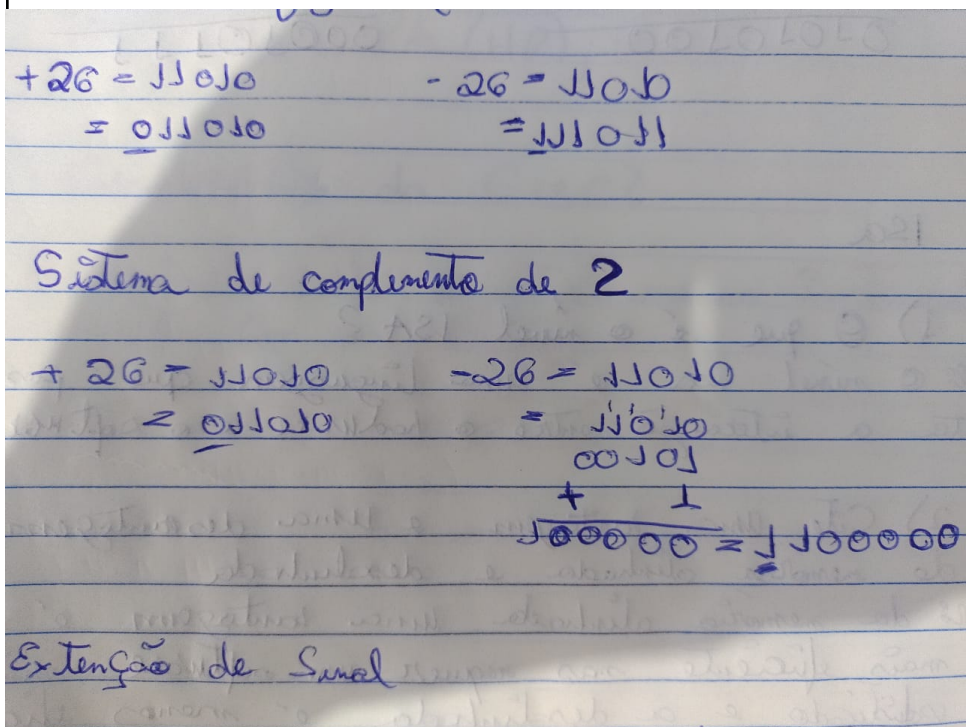 +26 = 11010 -26 = 11010
= 011010 = 111011
Sistema de complemento de 2
+ 26 = 11010 -26 = 11010
= 011010 = 11010
00101
+ 1
100000 = 1100000
Extenção de Sinal